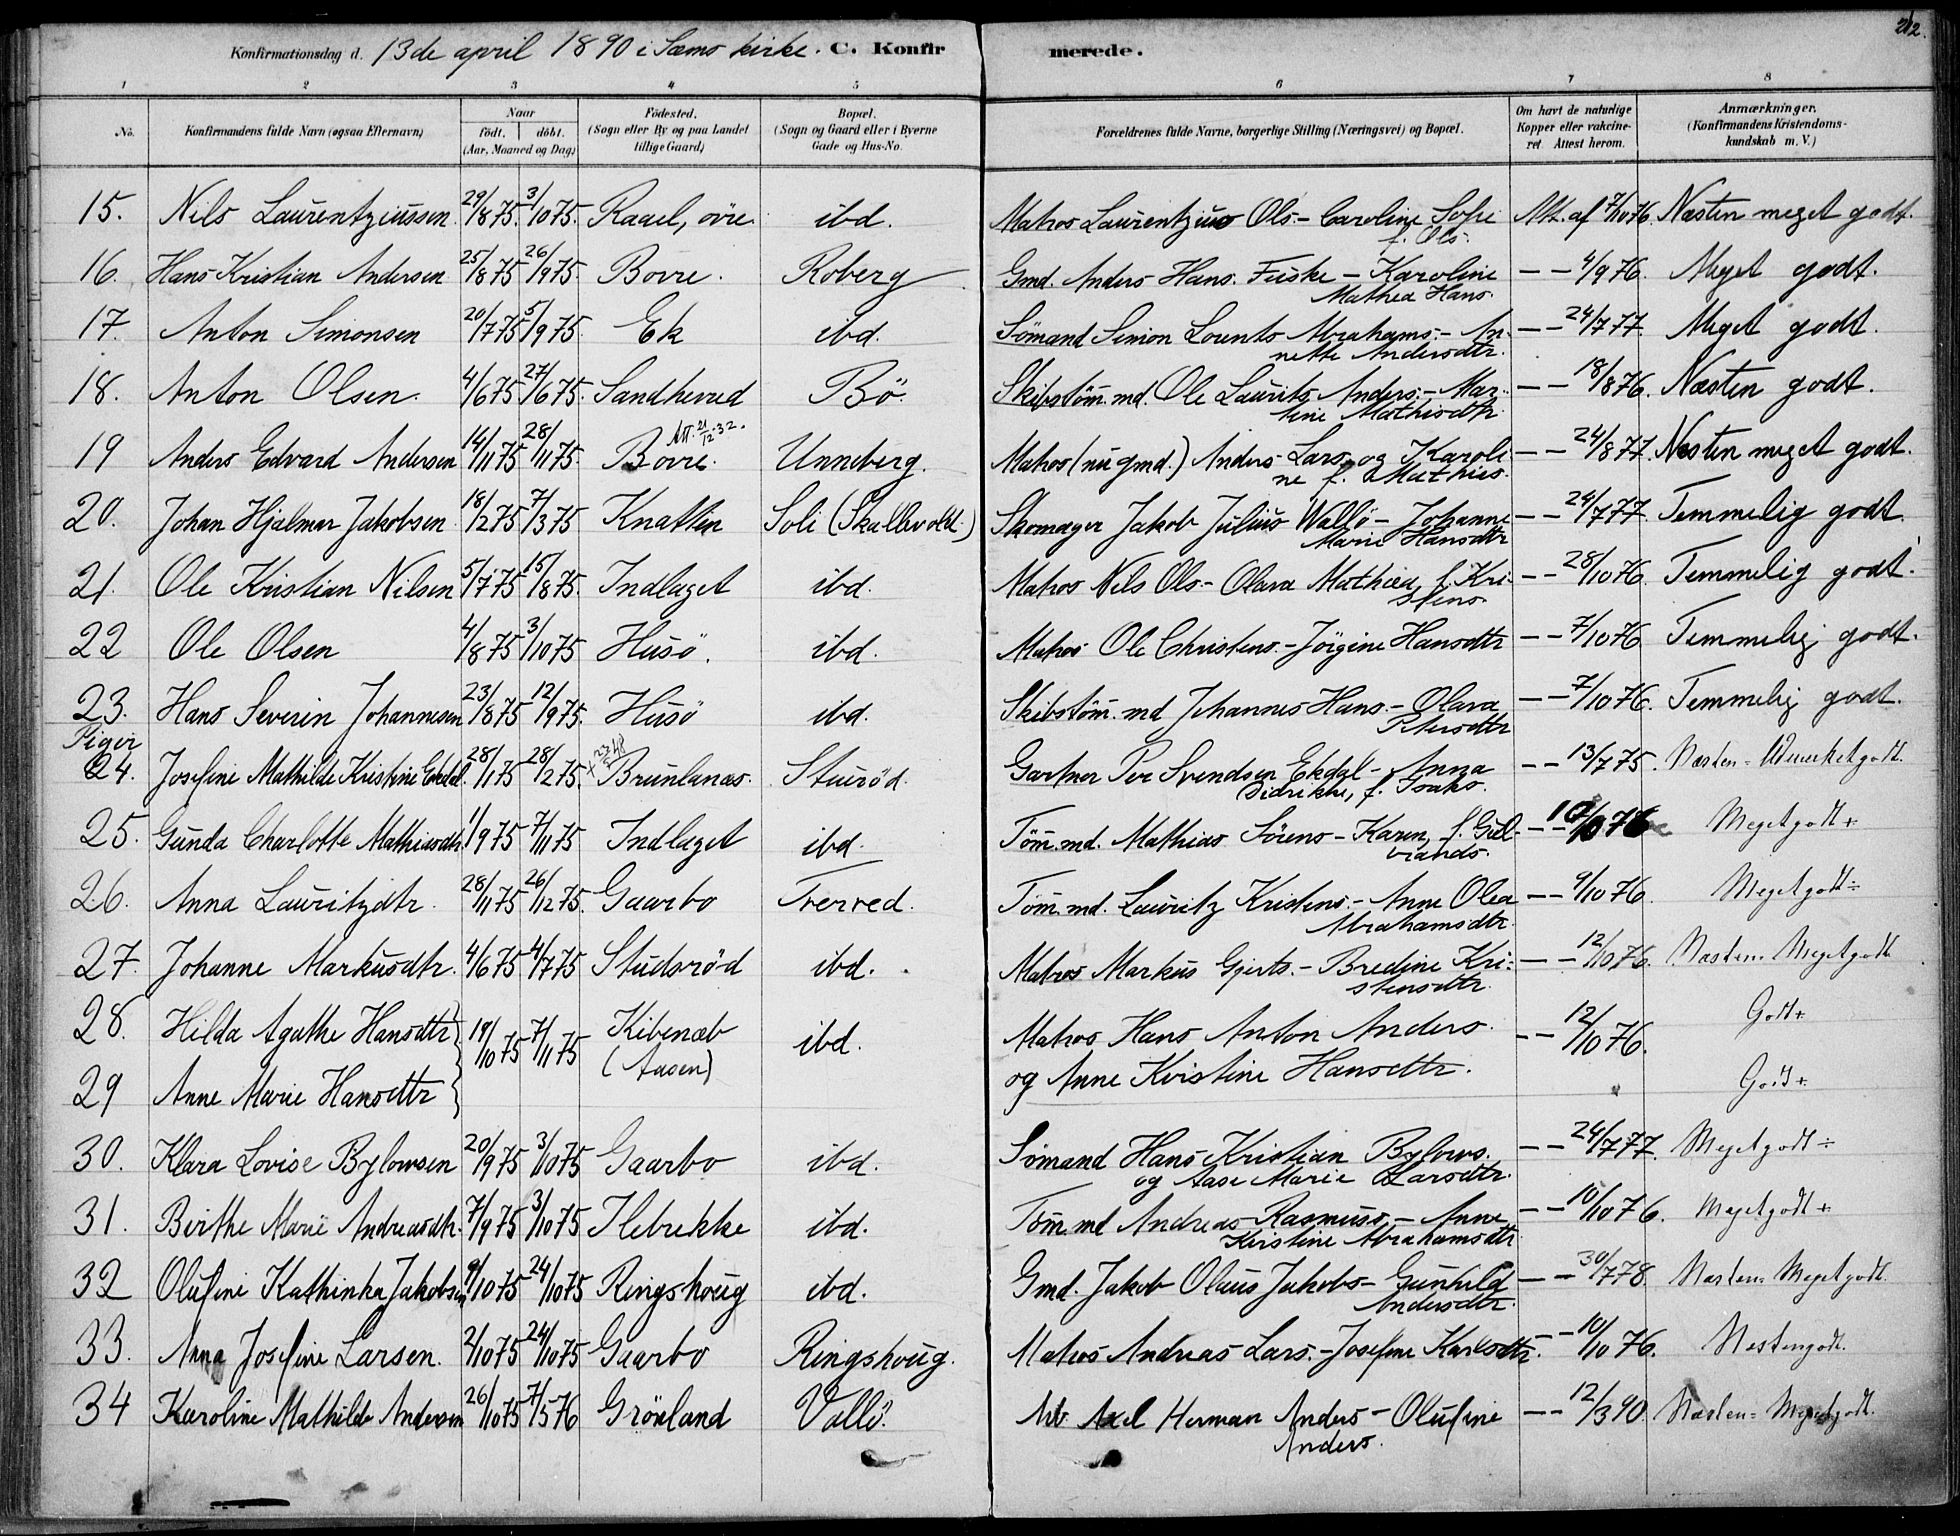 212.
Konfirmationsdag d. 13de april 1890 i Sæms kirke. C. Konfirmerede.
1 2 3 4 5 6 7 8
No. Konfirmandens fulde Navn (ogsaa Efternavn) Naar födt. döbt. (Aar, Maaned og Dag.) Födested. (Sogn eller By og paa Landet tillige Gaard.) Bopæl. (Sogn og Gaard eller i Byerne Gade og Hus-No. Forældrenes fulde Navne, borgerlige Stilling (Næringsvei) og Bopæl. Om havt de naturlige Kopper eller vakcineret Attest herom. Anmærkninger. (Konfirmandens Kristendomskundskab m. V.)
15. Nils Laurentziussen 29/8 75. 3/10 75. Raael, övre. ibd. Matros Laurentzius Ols. - Caroline Sofie f. Ols. Att. af 7/10 76. Næsten meget godt.
16. Hans Kristian Andersen 25/8 75 26/9 75. Bovre. Roberg Gmd. Anders Hans. Fuske - Karoline Mathea Hans. - - 4/9 76. Meget godt.
17. Anton Simonsen 20/7 75 5/9 75. Ek ibd. Sömand Simon Lorents Abrahams. - Annette Andersdtr. - - 24/7 77. Meget godt.
18. Anton Olsen. 4/6 75 27/6 75. Sandhered Bö. Skibstöm.md. Ole Laurits Anders. - Martine Mathisdtr. - - 18/8 76. Næsten godt.
19 Anders Edvard Andersen 14/11 75 28/11 75. Bovre. Att. 21/12-32. Unneberg. Matros (nu gmd.) Anders Lars. og Karoline f. Mathias. - - 24/8 77. Næsten meget godt.
20. Johan Hjalmar Jakobsen 18/2 75 7/3 75 Knatten Soli (Skallevold.) Skomager Jakob Julius Wallö - Johanne Marie Hansdtr - - 24/7 77. Temmelig godt.
21. Ole Kristian Nilsen 5/7 75 15/8 75. Indlaget ibd. Matros Nils Ols - Olava Mathea, f. Kristens. - - 28/10 76. Temmelig godt.
22 Ole Olsen 4/8 75 3/10 75 Husö. ibd. Matros Ole Christens. - Jörgine Hansdtr - - 7/10 76 Temmelig godt.
23. Hans Severin Johannesen 23/8 75 12/9 75. Husö ibd. Skibstöm.md Johannes Hans. - Olava Petersdtr - - 7/10 76. Temmelig godt.
Piger
24. Josefine Mathilde Kristine Ekdal. 28/1 75 28/2 75. Brunlanæs. Stusröd. Gartner Per Svendsen Ekdal - Anna Didrikke, f. Isaks. - - 13/7 75. Næsten = Udmerket godt.
25. Gunda Charlotte Mathiasdtr. 1/9 75 7/11 75 Indlaget ibd. Töm.md. Mathias Sörens - Karen, f. Gulbrands. - - 10/10 76 Meget godt +
26. Anna Lauritzdtr. 28/11 75 26/12 75. Gaarbo Treved. Töm.md. Lauritz Kristens. - Anne Olea Abrahamsdtr. - - 9/10 76. Meget godt ÷
27. Johanne Markusdtr. 4/6 75 4/7 75 Studsröd ibd. Matros Markus Gjerts. - Bredine Kristensdtr. - - 12/10 76. Næsten = Meget godt
28. Hilda Agathe Hansdtr 19/10 75 7/11 75 Kibenæb (Aasen) ibd. Matros Hans Anton Anders. - - 12/10 76. Godt +
29 Anne Marie Hansdtr og Anne Kristine Hansdtr. Godt +
30. Klara Lovise Bylowsen 20/9 75 3/10 75 Gaarbo ibd. Sömand Hans Kristian Bylows. og Aase Marie Larsdtr. - - 24/7 77. Meget godt ÷
31. Birthe Marie Andreasdtr. 7/9 75 3/10 75 Ilebrekke ibd. Töm.md Andreas Rasmuss. - Anne Kristine Abrahamsdtr - - 10/10 76. Meget godt +
32 Olufine Kathinka Jakobsen 9/10 75 24/10 75 Ringshoug ibd. Gmd. Jakob Olaus Jakobs - Gunhild Andersdtr. - - 30/7 78. Næsten = Meget godt.
33. Anna Josefine Larsen. 2/10 75 24/10 75 Gaarbo Ringshoug. Matros Andreas Lars. - Josefine Karlsdtr. - - 10/10 76. Næsten godt.
34 Karoline Mathilde Andersen 26/10 75 7/5 76 Grönland Vallö. Arb. Axel Herman Anders - Olufine Anders. - - 12/3 90. Næsten = Meget godt.